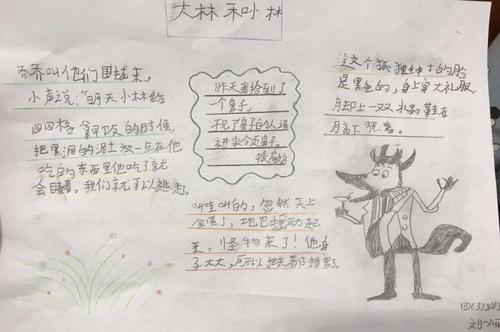 大林和小林
乔乔叫他们围拢来，
小声说："明天小林给
四四格拿皮的时候，
把黑洞的泥土放一点在他
吃的东西里他吃了就
会睡着，我们就可以逃走。
昨天我拾到了
一个鼻子，
不见了鼻子的人请
这个狐狸绅士的脸
是黑色的，身上穿大礼服，
脚上一双水晶鞋在
月亮下
哇哇叫的，忽然天上
全黑了，地也摇动起
来，怪物来了！他身
子太大，所以把天都挡黑了。
四(3)班